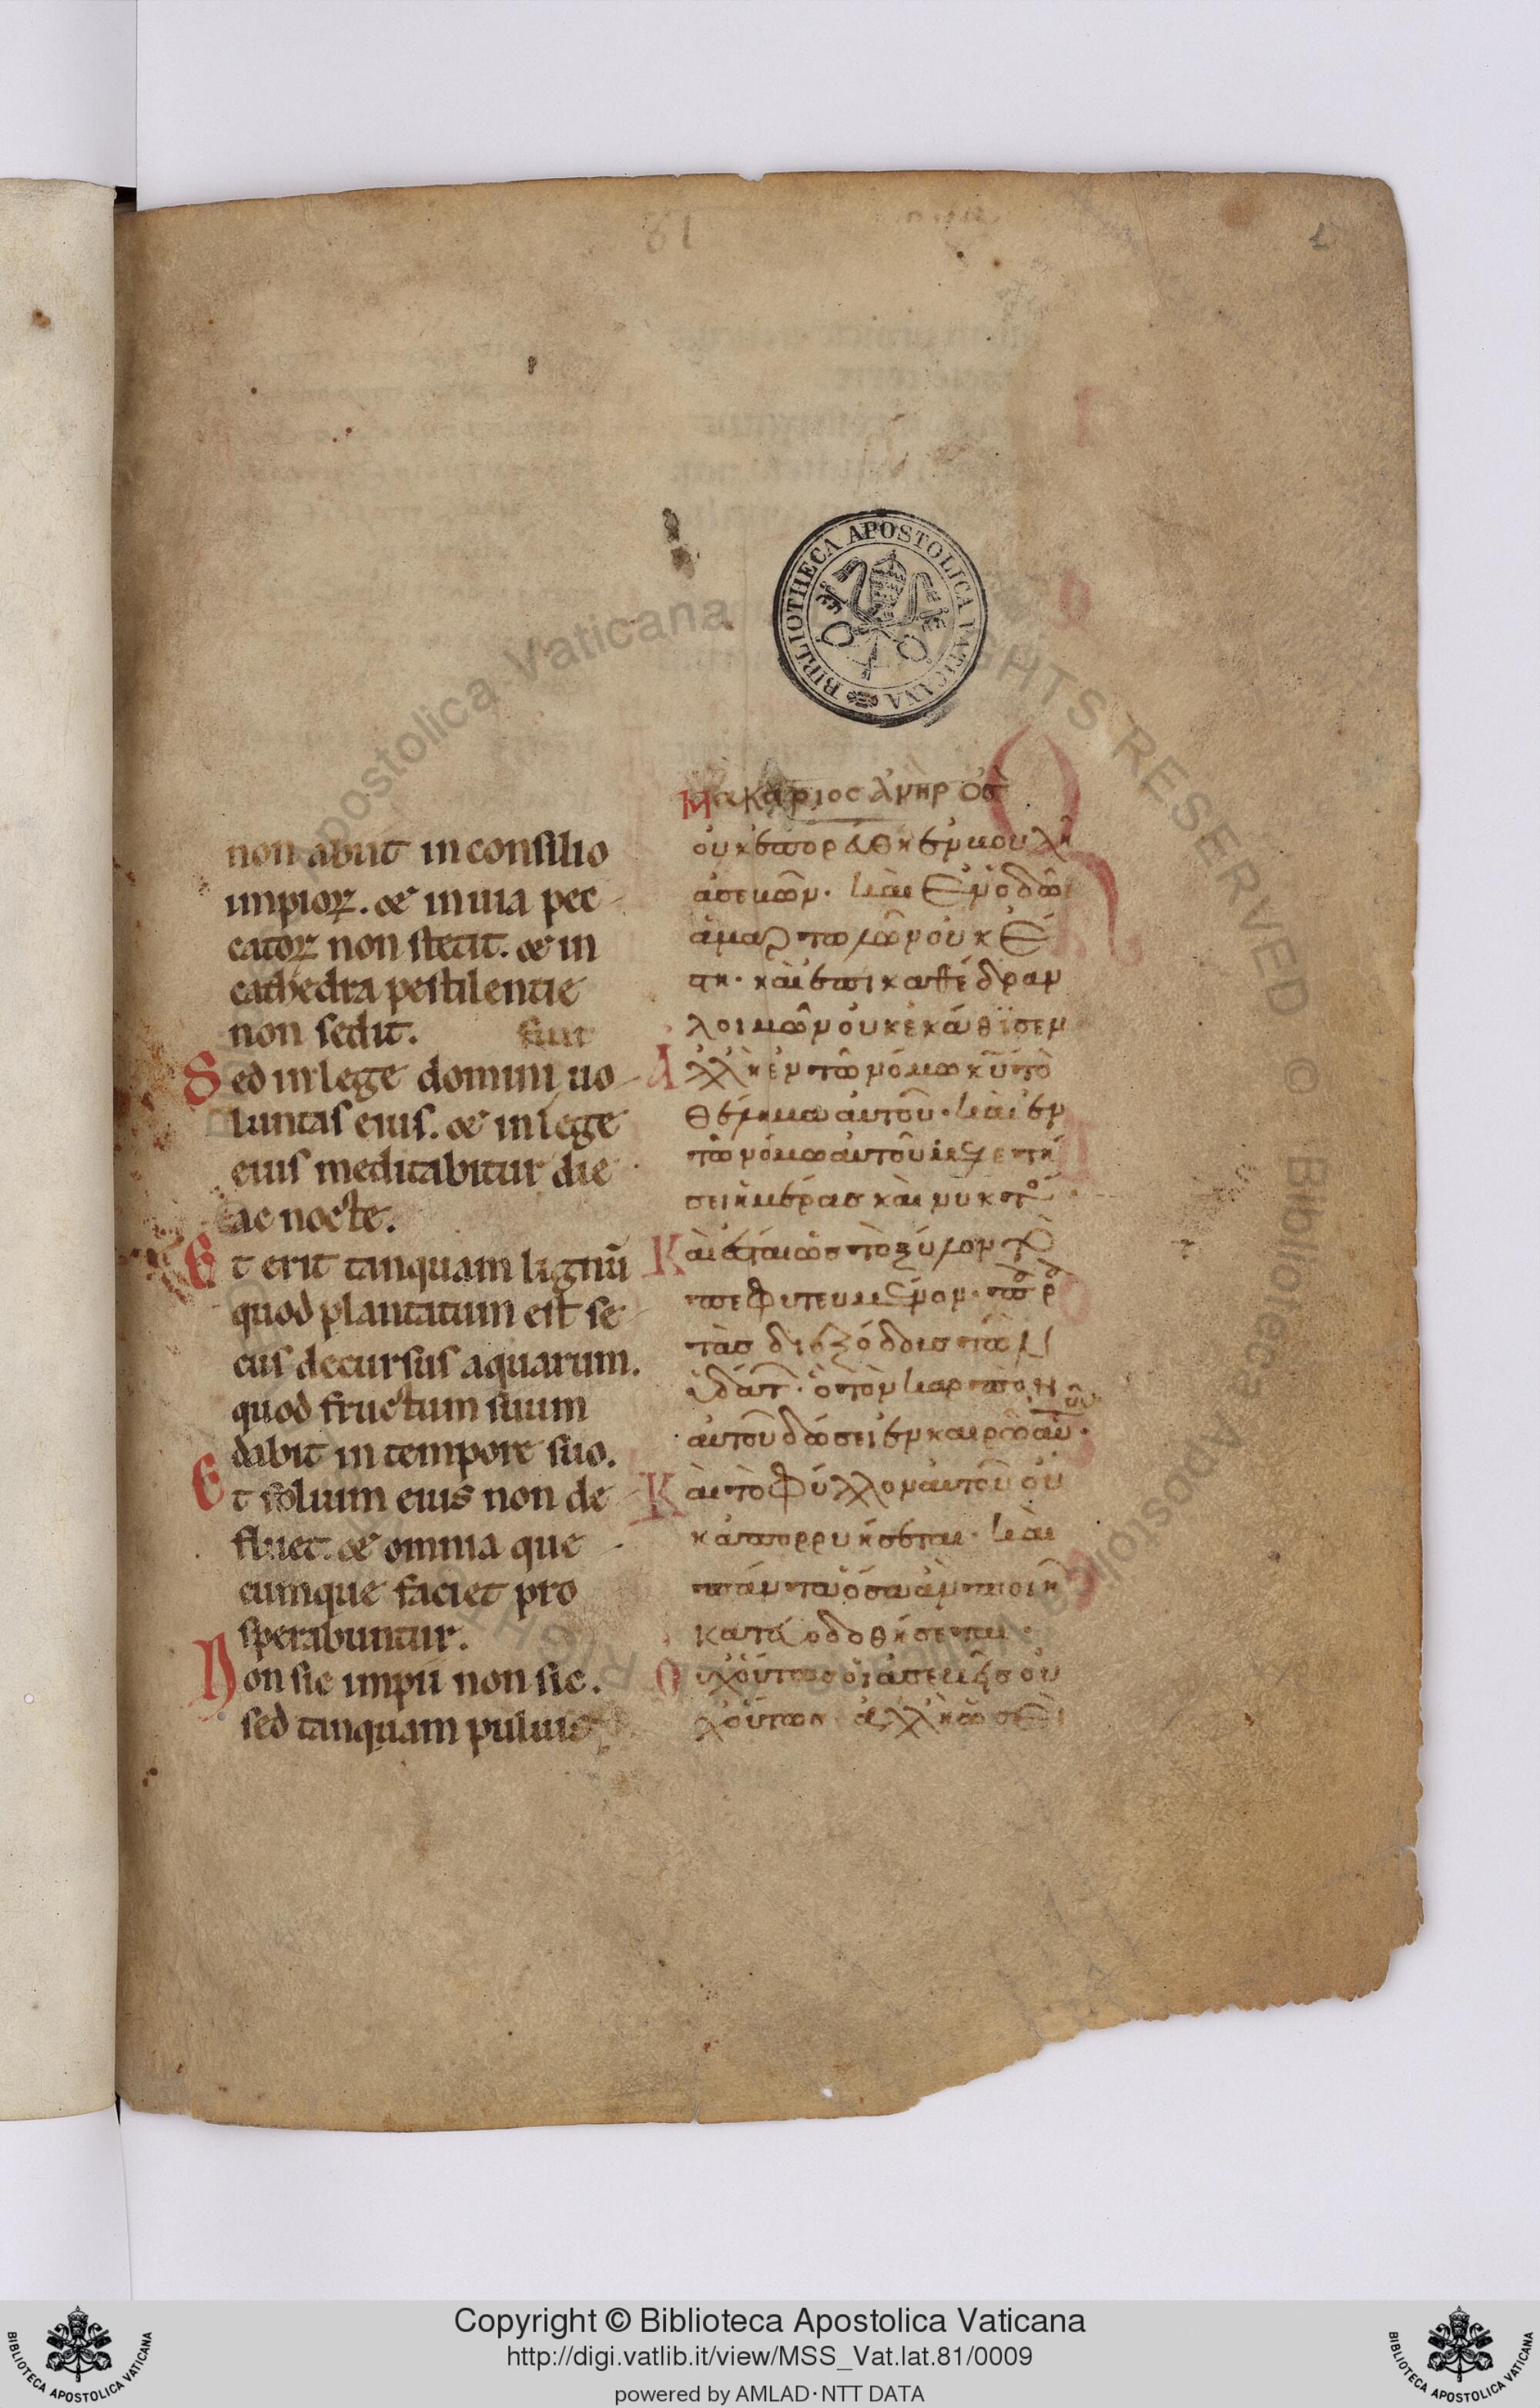 1
BIBLIOTHECA APOSTOLICA VATICANA
non abiit in consilio
impioꝝ. & in uia pec
catoꝝ non stetit. & in
cathedra pestilentie
non sedit. fuit
Sed in lege domini uo
luntas eius. & in lege
eius meditabitur die
ac nocte.
Et erit tanquam lignū
quod plantatum est se
cus decursus aquarum.
quod fructum suum
dabit in tempore suo.
Et folium eius non de
fluet. & omnia que
cumque faciet pro
sperabuntur.
Non sic impii non sic.
sed tanquam puluis
Μακάριος ἀνὴρ ὃς
οὐκ ἐπορεύθη ἐν βουλῆ
ἀσεβῶν. καὶ ἐν ὁδῶ
ἁμαρτωλῶν οὐκ ἔ
στη. καὶ ἐπὶ καθέδραν
λοιμῶν οὐκ ἐκάθϊσεν
Ἀλλ' ἢ ἐν τῶ νόμω κ̅υ̅ τὸ
θέλημα αὐτοῦ. καὶ ἐν
τῶ νόμω αὐτοῦ μελετή
σει ἡμέρας καὶ νυκτό
Καὶ ἔσται ὡς τὸ ξύλον τὸ
πεφυτευμένον. παρὰ
τὰς διεξόδους τῶν
ὑδάτ. ὃ τὸν καρπὸν
αὐτοῦ δώσει ἐν καιρῶ αὐ.
Καὶ τὸ φύλλον αὐτοῦ οὐ
κ ἀπορρυήσεται. καὶ
πάντα ὅσα ἂν ποιῆ
κατευοδοθήσεται.
Οὐχ οὕτως οἱ ἀσεβεῖς οὐ
χ οὕτως. ἀλλ' ἢ ὡσεὶ
Apostolica Vaticana
RIGHTS RESERVED © Biblioteca Apostolica
Copyright © Biblioteca Apostolica Vaticana
http://digi.vatlib.it/view/MSS_Vat.lat.81/0009
powered by AMLAD·NTT DATA
BIBLIOTECA APOSTOLICA VATICANA
BIBLIOTECA APOSTOLICA VATICANA